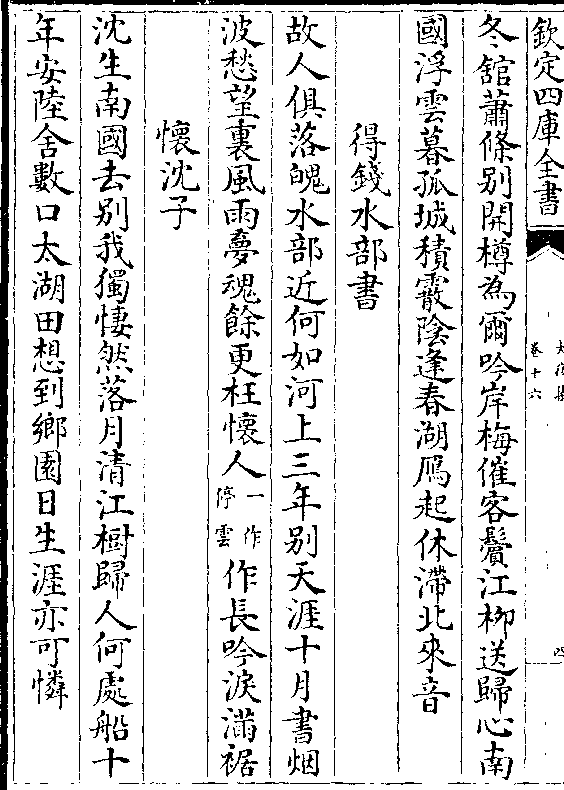 欽定四庫全書
卷十六
冬舘蕭條别開樽為爾吟岸梅催客鬢江柳送歸心南
國浮雲暮孤城積霰陰逢春湖鴈起休滯北來音
得錢水部書
故人俱落魄水部近何如河上三年别天涯十月書烟
波愁望裏風雨夢魂餘更枉懷人一作停雲作長吟淚滿裾
懷沈子
沈生南國去别我獨悽然落月清江樹歸人何處船十
年安陸舍數口太湖田想到鄉園日生涯亦可憐